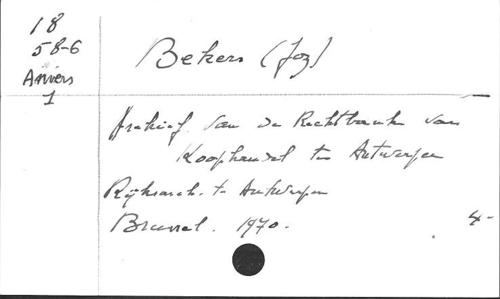 18
58-6
Anvers
1
Bekers (Joz)
Archief van de Rechtbank van
Koophandel te Antwerpen
Rijksarch. te Antwerpen
Brussel. 1970.
4-